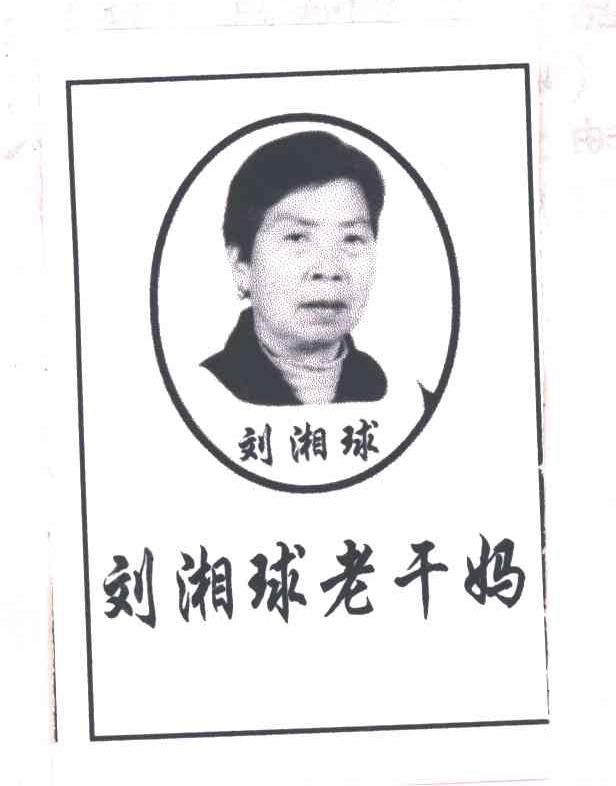 刘湘球
刘湘球老干妈